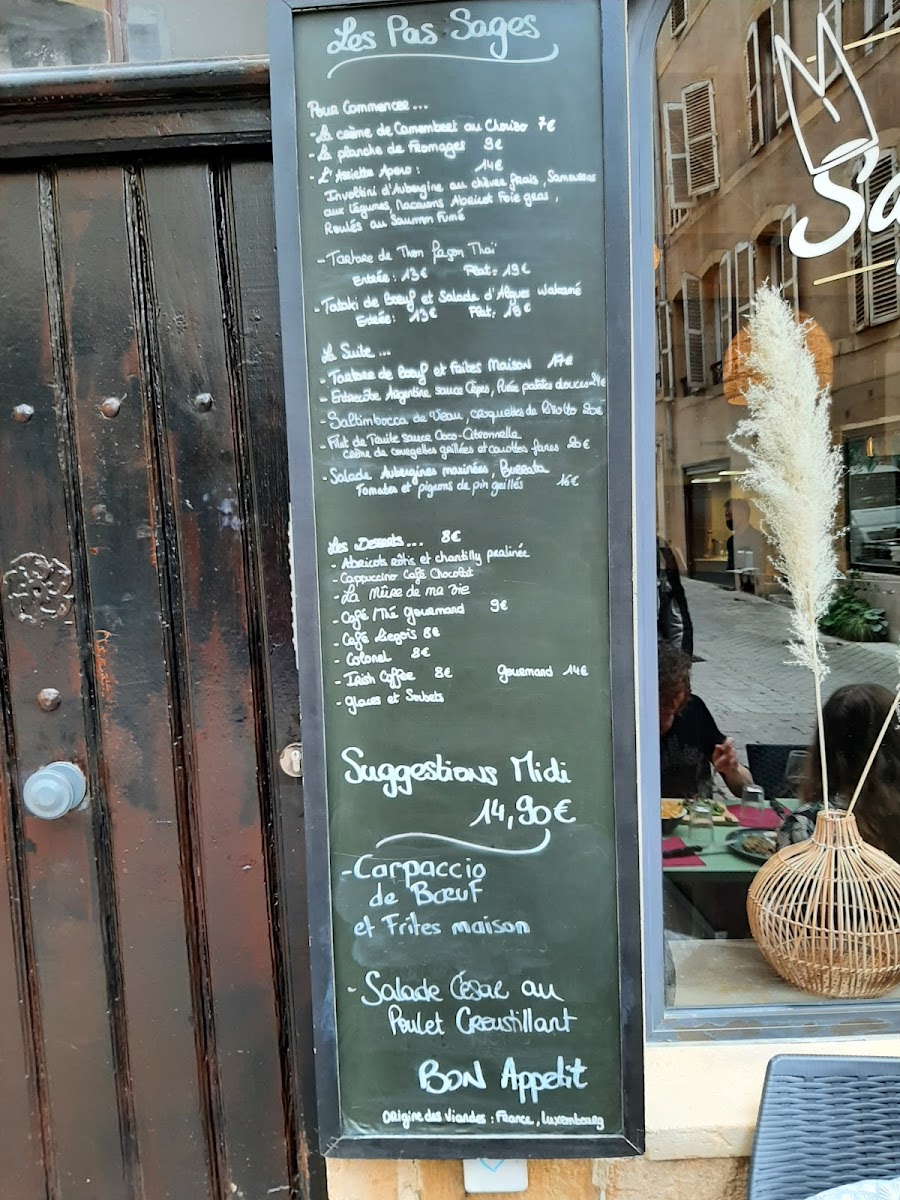 Les Pas Sages
Pour Commencer...
- La crème de Camembert au Chorizo 7€
- La planche de Fromages 9€
- L'Assiette Apero : 14€
Involtini d'Aubergine au chèvre frais, Samoussas
aux légumes, Macarons Abricot Foie gras,
Roulés au Saumon Fumé
- Tartare de Thon façon Thaï
Entrée: 13€ Plat: 19€
- Tataki de Bœuf et Salade d'Algues Wakamé
Entrée: 13€ Plat: 18€
La Suite...
- Tartare de Bœuf et Frites Maison 17€
- Entrecôte Argentine sauce Cèpes, Purée patates douces
- Saltimbocca de Veau, croquettes de Risotto 20€
- Filet de Truite sauce Coco-Citronnelle
crème de courgettes grillées et carottes fanes 20€
- Salade Aubergines marinées Burrata
Tomates et pignons de pin grillés 16€
Les Desserts... 8€
- Abricots rôtis et chantilly pralinée
- Cappuccino Café Chocolat
- La Mûre de ma vie
- Café/Thé Gourmand 9€
- Café Liegois 8€
- Colonel 8€
- Irish Coffee 8€ Gourmand 14€
- Glaces et Sorbets
Suggestions Midi
14,90€
- Carpaccio
de Bœuf
et Frites maison
- Salade César au
Poulet Croustillant
BON Appetit
Origine des Viandes : France, Luxembourg